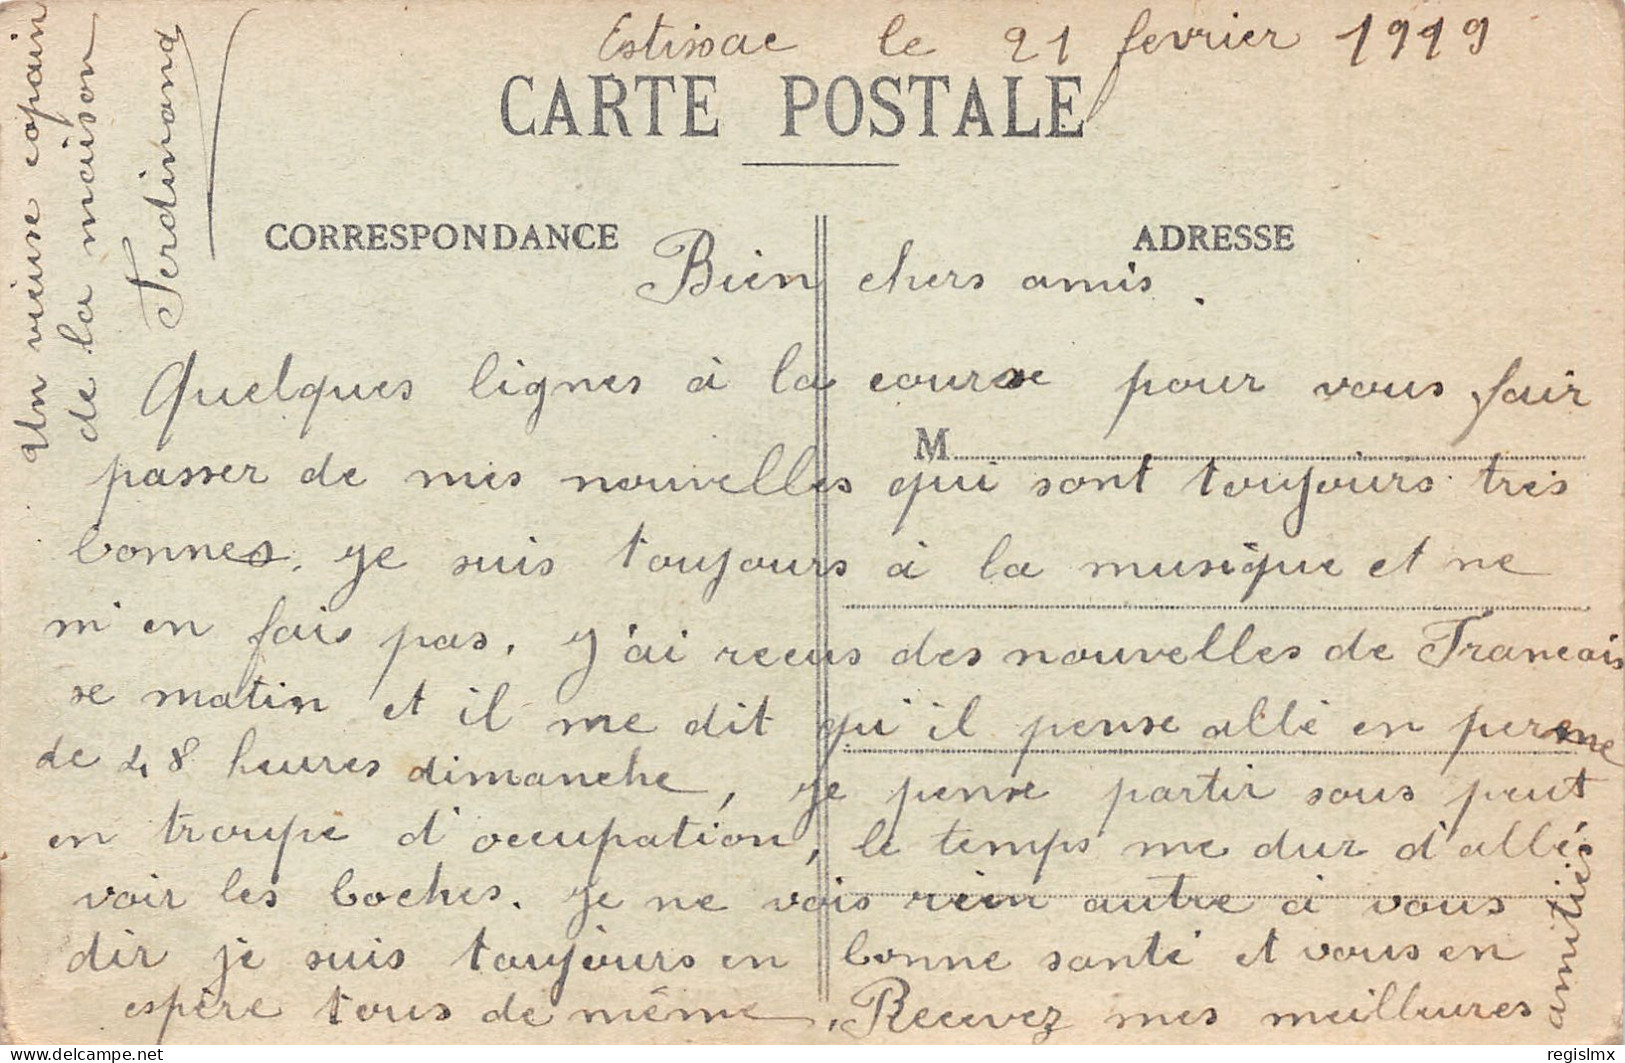 Estissac le 21 fevrier 1919
CARTE POSTALE
CORRESPONDANCE
ADRESSE
Bien chers amis.
Quelques lignes à la course pour vous fair
M
passer de mes nouvelles qui sont toujours tres
bonnes. je suis toujours à la musique et ne
m'en fais pas. J'ai recus des nouvelles de Francois
se matin et il me dit qu'il pense allé en perme
de 48 heures dimanche, je pense partir sous peut
en troupe d'occupation, le temps me dur d'allés
voir les boches. Je ne vois rien autre à vous
dir je suis toujours en bonne santé et vous en
espère tous de même. Recevez mes meilleures
amitiés
Un vieuse copain
de la maison
Ferdinand
regislmx